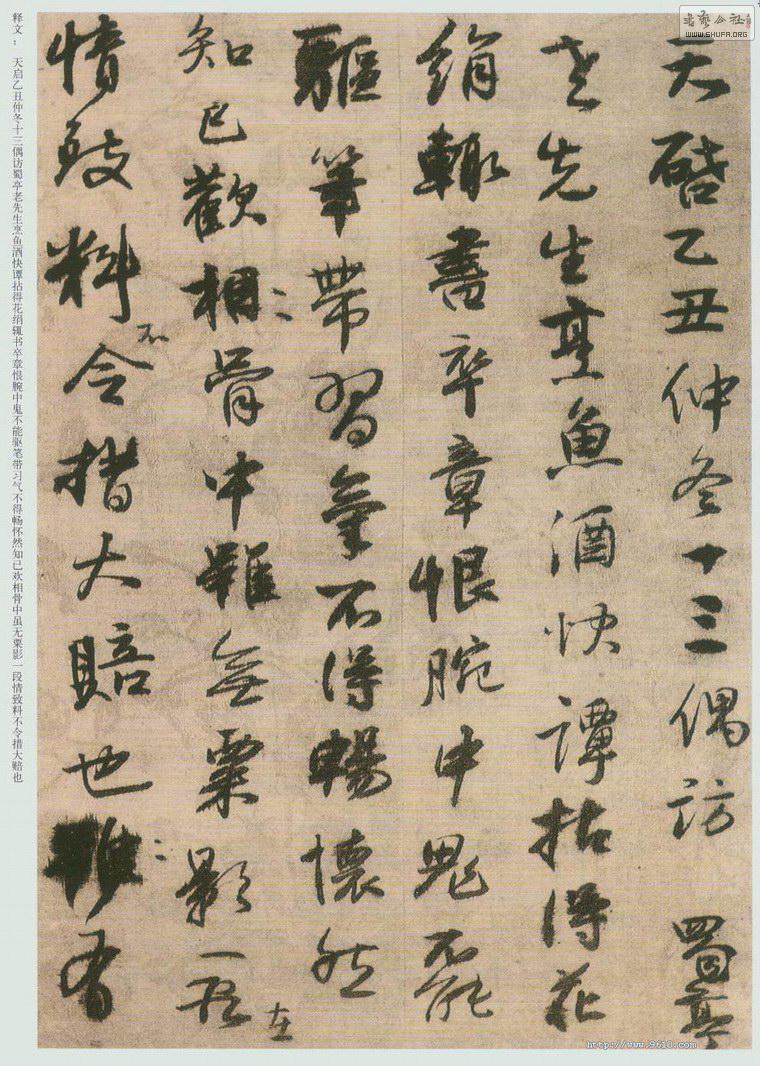 書藝公社
WWW.SHUFA.ORG
天啓乙丑仲冬十三偶訪蜀亭
老先生烹魚酒快譚拈得花
絹輒書卒章恨腕中鬼不能
驅筆帶習氣不得暢懷然
知己歡相骨中雖無粟影一段在
情致料不令措大賠也有
释文：天启乙丑仲冬十三偶访蜀亭老先生烹鱼酒快谭拈得花绢辄书卒章恨腕中鬼不能驱笔带习气不得畅怀然知已欢相骨中虽无粟影一段情致料不令措大赔也
http://www.9610.com